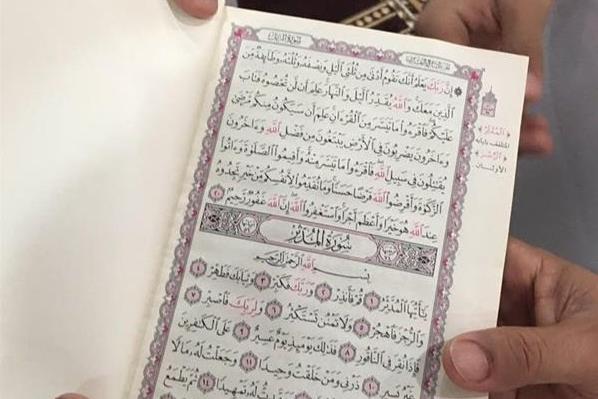 الجزء التاسع والعشرون
۞ إِنَّ رَبَّكَ يَعْلَمُ أَنَّكَ تَقُومُ أَدْنَىٰ مِن ثُلُثَيِ ٱلَّيْلِ وَنِصْفَهُۥ وَثُلُثَهُۥ وَطَآئِفَةٌ مِّنَ
ٱلَّذِينَ مَعَكَ وَٱللَّهُ يُقَدِّرُ ٱلَّيْلَ وَٱلنَّهَارَ عَلِمَ أَن لَّن تُحْصُوهُ فَتَابَ
عَلَيْكُمْ فَٱقْرَءُوا۟ مَا تَيَسَّرَ مِنَ ٱلْقُرْءَانِ عَلِمَ أَن سَيَكُونُ مِنكُم مَّرْضَىٰ
وَءَاخَرُونَ يَضْرِبُونَ فِى ٱلْأَرْضِ يَبْتَغُونَ مِن فَضْلِ ٱللَّهِ وَءَاخَرُونَ
يُقَٰتِلُونَ فِى سَبِيلِ ٱللَّهِ فَٱقْرَءُوا۟ مَا تَيَسَّرَ مِنْهُ وَأَقِيمُوا۟ ٱلصَّلَوٰةَ وَءَاتُوا۟
ٱلزَّكَوٰةَ وَأَقْرِضُوا۟ ٱللَّهَ قَرْضًا حَسَنًا وَمَا تُقَدِّمُوا۟ لِأَنفُسِكُم مِّنْ خَيْرٍ تَجِدُوهُ
عِندَ ٱللَّهِ هُوَ خَيْرًا وَأَعْظَمَ أَجْرًا وَٱسْتَغْفِرُوا۟ ٱللَّهَ إِنَّ ٱللَّهَ غَفُورٌ رَّحِيمٌۢ ٢٠
سُورَةُ المُدَّثِّر
بِسْمِ ٱللَّهِ ٱلرَّحْمَٰنِ ٱلرَّحِيمِ
يَٰٓأَيُّهَا ٱلْمُدَّثِّرُ ١ قُمْ فَأَنذِرْ ٢ وَرَبَّكَ فَكَبِّرْ ٣ وَثِيَابَكَ فَطَهِّرْ ٤
وَٱلرُّجْزَ فَٱهْجُرْ ٥ وَلَا تَمْنُن تَسْتَكْثِرُ ٦ وَلِرَبِّكَ فَٱصْبِرْ ٧
فَإِذَا نُقِرَ فِى ٱلنَّاقُورِ ٨ فَذَٰلِكَ يَوْمَئِذٍ يَوْمٌ عَسِيرٌ ٩ عَلَى ٱلْكَٰفِرِينَ
غَيْرُ يَسِيرٍ ١٠ ذَرْنِى وَمَنْ خَلَقْتُ وَحِيدًا ١١ وَجَعَلْتُ لَهُۥ مَالًا
لَهُۥ تَمْهِيدًا ١٤ ثُمَّ يَطْمَعُ